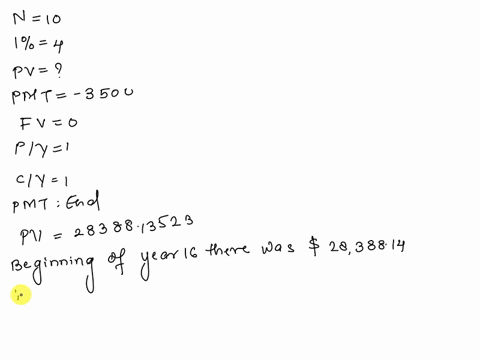 N = 10
I% = 4
PV = ?
PMT = -3500
FV = 0
P/Y = 1
C/Y = 1
PMT : End
PV = 28388.13523
Beginning of year 16 there was $ 28,388.14